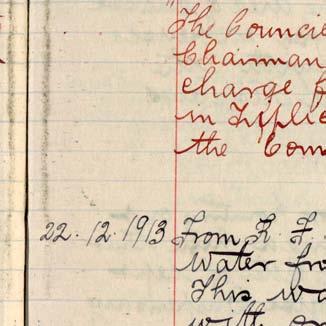 "The Councie
Chairman
charge f
in Tipplic
the Com
22.12.1913 From K. F.
water fro
This wa
with